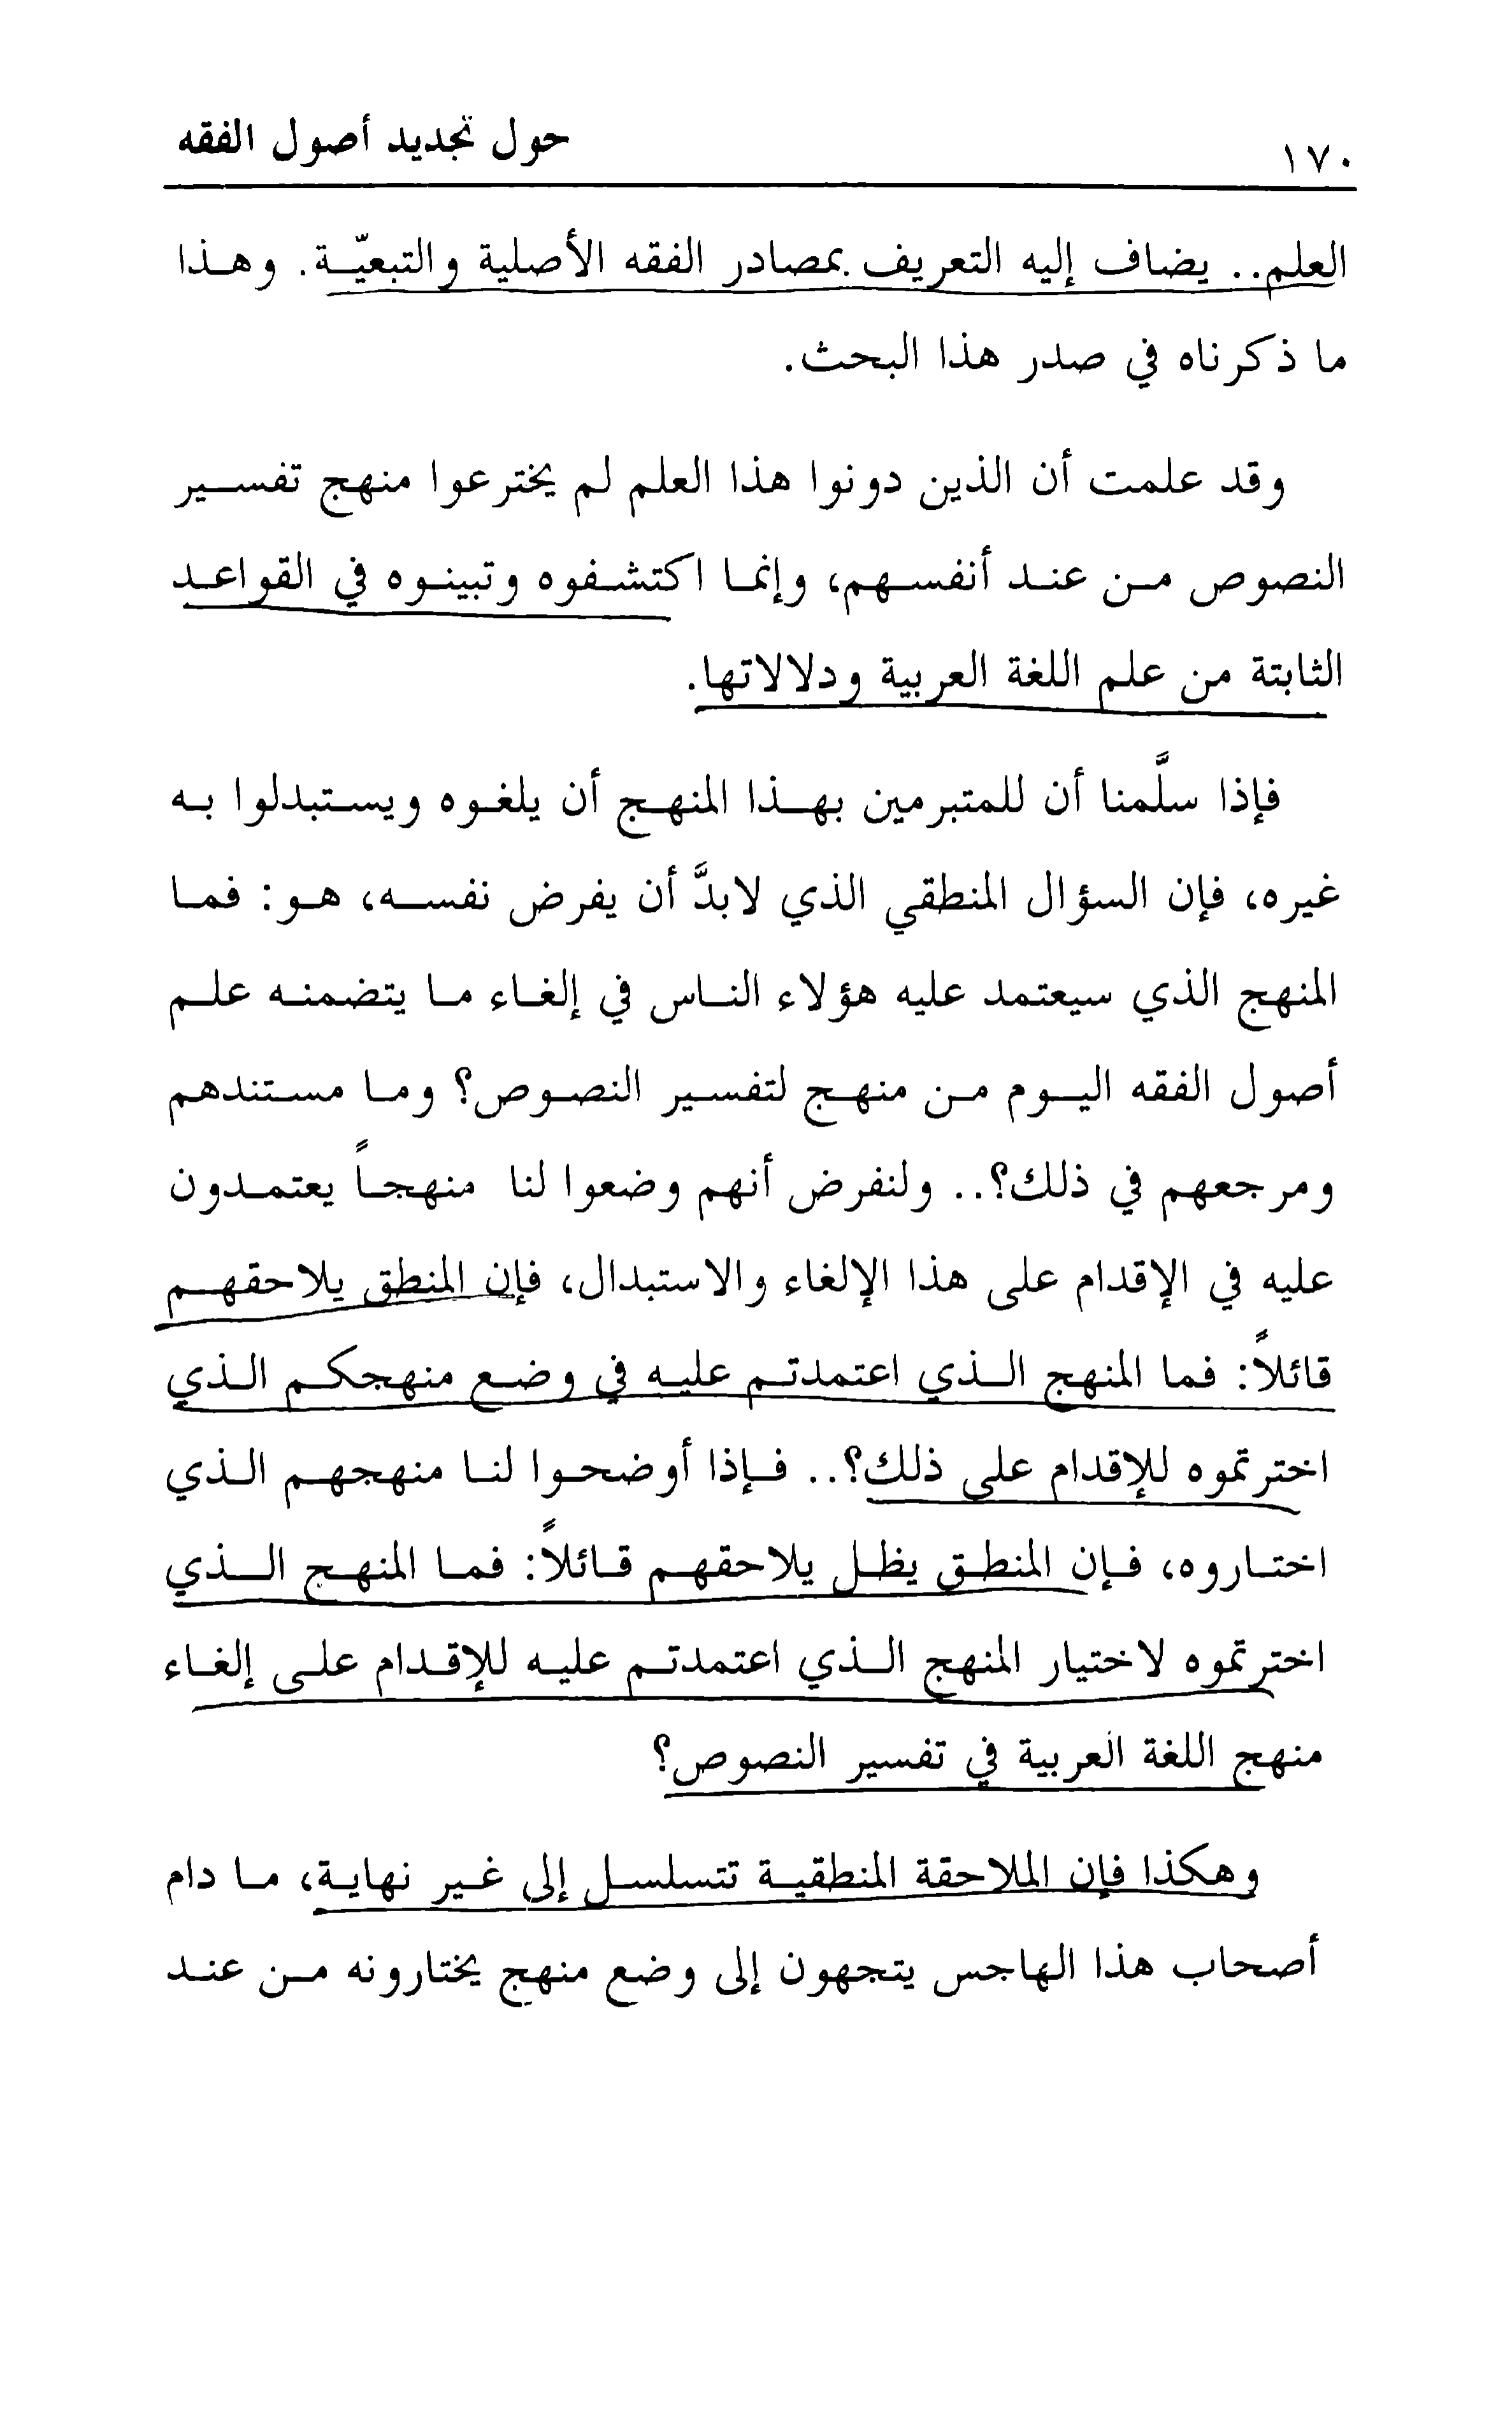 ١٧٠ حول تجديد أصول الفقه
العلم.. يضاف إليه التعريف بمصادر الفقه الأصلية والتبعيّة. وهذا
ما ذكرناه في صدر هذا البحث.
وقد علمت أن الذين دونوا هذا العلم لم يخترعوا منهج تفسير
النصوص من عند أنفسهم، وإنما اكتشفوه وتبينوه في القواعد
الثابتة من علم اللغة العربية ودلالاتها.
فإذا سلَّمنا أن للمتبرمين بهذا المنهج أن يلغوه ويستبدلوا به
غيره، فإن السؤال المنطقي الذي لابدَّ أن يفرض نفسه، هو: فما
المنهج الذي سيعتمد عليه هؤلاء الناس في إلغاء ما يتضمنه علم
أصول الفقه اليوم من منهج لتفسير النصوص؟ وما مستندهم
ومرجعهم في ذلك؟.. ولنفرض أنهم وضعوا لنا منهجاً يعتمدون
عليه في الإقدام على هذا الإلغاء والاستبدال، فإن المنطق يلاحقهم
قائلاً: فما المنهج الذي اعتمدتم عليه في وضع منهجكم الذي
اخترتموه للإقدام على ذلك؟.. فإذا أوضحوا لنا منهجهم الذي
اختاروه، فإن المنطق يظل يلاحقهم قائلاً: فما المنهج الذي
اخترتموه لاختيار المنهج الذي اعتمدتم عليه للإقدام على إلغاء
منهج اللغة العربية في تفسير النصوص؟
وهكذا فإن الملاحقة المنطقية تتسلسل إلى غير نهاية، ما دام
أصحاب هذا الهاجس يتجهون إلى وضع منهج يختارونه من عند